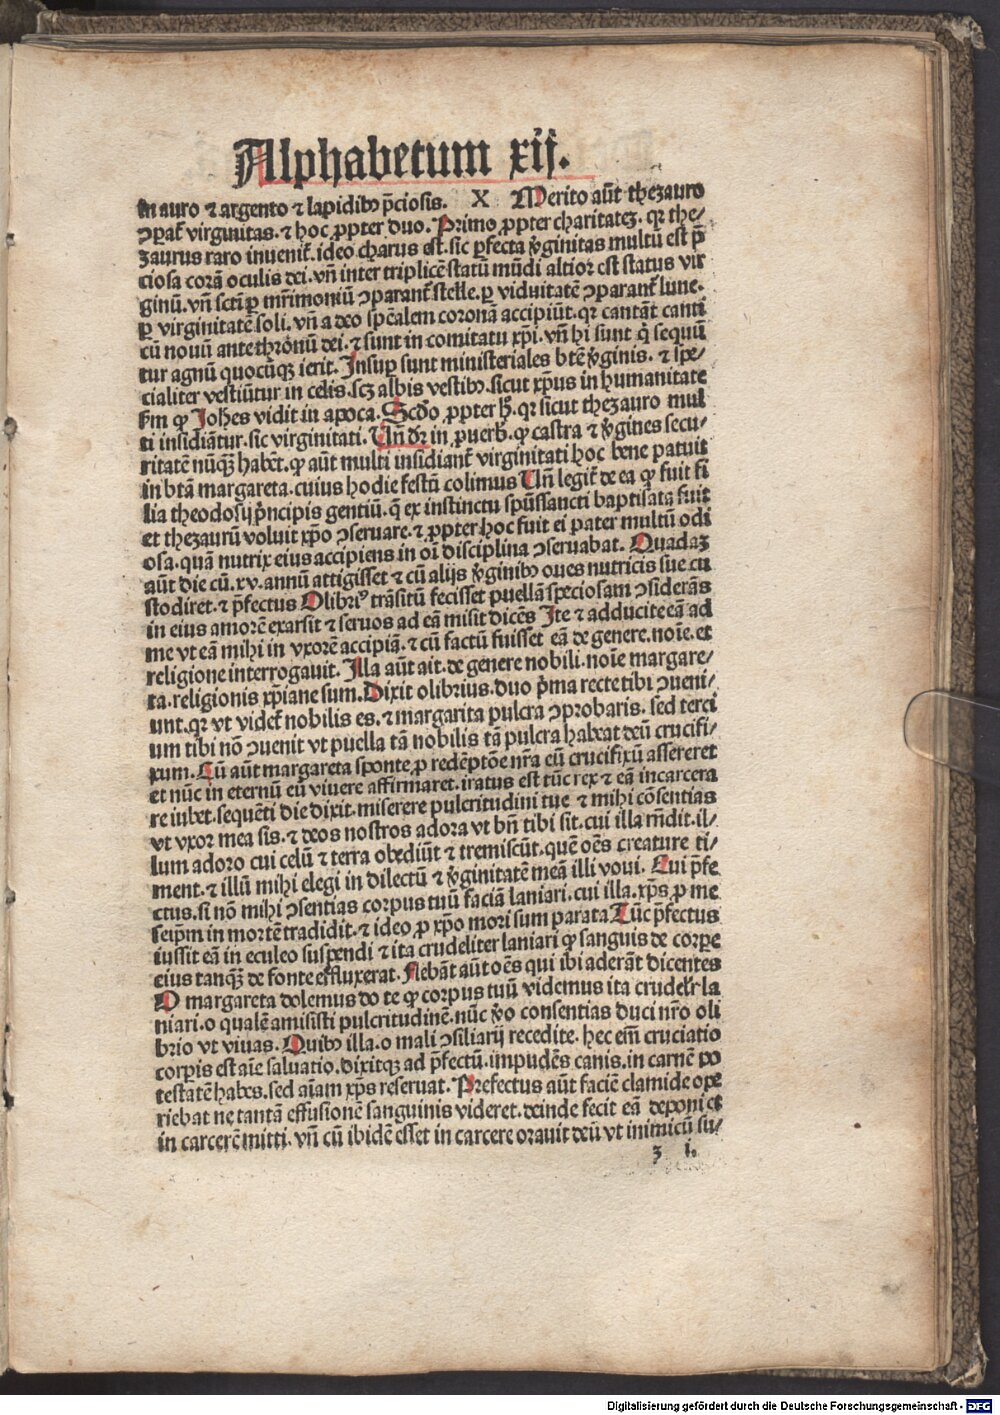 Alphabetum xij.
in auro ⁊ argento ⁊ lapidibꝰ p̄ciosis. X Merito aūt thezauro
ꝯpat᷑ virginitas. ⁊ hoc ꝓpter duo. Primo ꝓpter charitateꝫ. qꝛ the⸗
zaurus raro inuenit᷑. ideo charus est. sic ꝑfecta v̄ginitas multū est p̄
ciosa corā oculis dei. vn̄ inter triplicē statū mūdi altior est status vir
ginū. vn̄ sctūꝑ mr̄imoniū ꝯparant᷑ stelle. ꝑ viduitatē ꝯparant᷑ lune.
ꝑ virginitatē soli. vn̄ a deo spēalem coronā accipiūt. qꝛ cantāt canti
cū nouū ante thronū dei. ⁊ sunt in comitatu xp̄i. vn̄ hi sunt q̄ sequū
tur agnū quocūqꝫ ierit. Insuꝑ sunt ministeriales btē v̄ginis. ⁊ spe⸗
cialiter vestiūtur in celis. scꝫ albis vestibꝰ. sicut xp̄us in humanitate
fm ꝙ Johēs vidit in apoca. Scdo ꝓpter h̄. qꝛ sicut thezauro mul
ti insidiātur. sic virginitati. Un̄ dꝛ in ꝓuerb. ꝙ castra ⁊ v̄gines secu⸗
ritatē nūqꝫ habēt. ꝙ aūt multi insidiant᷑ virginitati hoc bene patuit
in btā margareta. cuius hodie festū colimus Un̄ legit᷑ de ea ꝙ fuit fi
lia theodosij p̄ncipis gentiū. q̄ ex instinctu spūssancti baptisata fuit
et thezaurū voluit xp̄o ꝯseruare. ⁊ ꝓpter hoc fuit ei pater multū odi
osa. quā nutrix eius accipiens in oi disciplina ꝯseruabat. Quadaꝫ
aūt die cū. xv. annū attigisset ⁊ cū alijs v̄ginibꝰ oues nutricis sue cu
stodiret. ⁊ p̄fectus Olibriꝰ trāsitū fecisset puellā speciosam ꝯsiderās
in eius amorē exarsit ⁊ seruos ad eā misit dicēs Ite ⁊ adducite eā ad
me vt eā mihi in vxorē accipiā. ⁊ cū factū fuisset eā de genere. noīe. et
religione interrogauit. Illa aūt ait. de genere nobili. noīe margare⸗
ta. religionis xp̄iane sum. Dixit olibrius. duo p̄ma recte tibi ꝯueni⸗
unt. qꝛ vt videt᷑ nobilis es. ⁊ margarita pulcra ꝯprobaris. sed terci
um tibi nō ꝯuenit vt puella tā nobilis tā pulcra habeat deū crucifi⸗
xum. Cū aūt margareta sponte ꝓ redēptōe nr̄a eū crucifixū assereret
et nūc in eternū eū viuere affirmaret. iratus est tūc rex ⁊ eā incarcera
re iubet. sequēti die dixit. miserere pulcritudini tue ⁊ mihi cōsentias
vt vxor mea sis. ⁊ deos nostros adora vt bn̄ tibi sit. cui illa rn̄dit. il⸗
lum adoro cui celū ⁊ terra obediūt ⁊ tremiscūt. quē oēs creature ti⸗
ment. ⁊ illū mihi elegi in dilectū ⁊ v̄ginitatē meā illi voui. Cui p̄fe
ctus. si nō mihi ꝯsentias corpus tuū faciā laniari. cui illa. xp̄s ꝓ me
seipm̄ in mortē tradidit. ⁊ ideo ꝓ xp̄o mori sum parata Tūc p̄fectus
iussit eā in eculeo suspendi ⁊ ita crudeliter laniari ꝙ sanguis de corꝑe
eius tanqꝫ de fonte effluxerat. Flebāt aūt oēs qui ibi aderāt dicentes
O margareta dolemus do te ꝙ corpus tuū videmus ita crudelr̄ la
niari. o qualē amisisti pulcritudinē. nūc v̄o consentias duci nr̄o oli
brio vt viuas. Quibꝰ illa. o mali ꝯsiliarij recedite. hec em̄ cruciatio
corꝑis est aīe saluatio. dixitqꝫ ad p̄fectū. impudēs canis. in carnē po
testatē habes. sed aīam xp̄s reseruat. Prefectus aūt faciē clamide ope
riebat ne tantā effusionē sanguinis videret. deinde fecit eā deponi et
in carcerē mitti. vn̄ cū ibidē esset in carcere orauit deū vt inimicū su⸗
ʒ i.
Digitalisierung gefördert durch die Deutsche Forschungsgemeinschaft - DFG